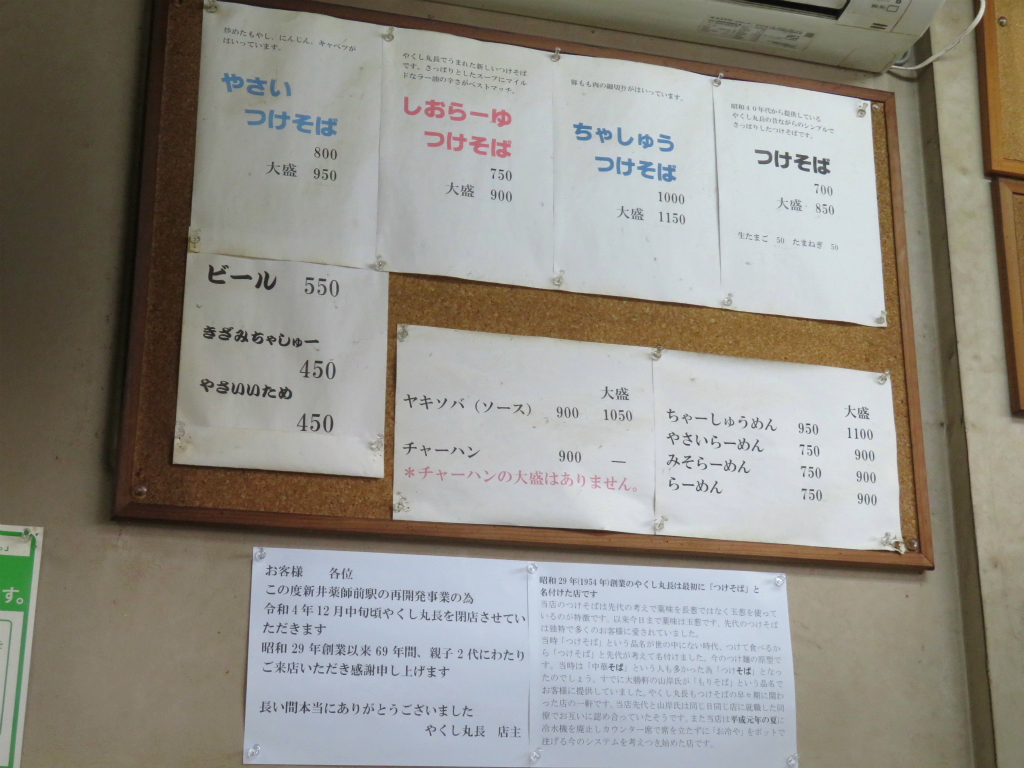 炒めたもやし、にんじん、キャベツが
はいっています。
やさい
つけそば
800
大盛 950
やくし丸長でうまれた新しいつけそば
です。さっぱりとしたスープにマイル
ドなラー油の辛さがベストマッチ。
しおらーゆ
つけそば
750
大盛 900
豚もも肉の細切りがはいっています。
ちゃしゅう
つけそば
1000
大盛 1150
昭和30年代から提供している
やくし丸長の昔ながらのシンプルで
さっぱりしたつけそばです。
つけそば
700
大盛 850
生たまご 50 たまねぎ 50
ビール 550
きざみちゃしゅー
450
やさいいため
450
大盛
ヤキソバ(ソース) 900 1050
チャーハン 900 ―
*チャーハンの大盛はありません。
大盛
ちゃーしゅうめん 950 1100
やさいらーめん 750 900
みそらーめん 750 900
らーめん 750 900
お客様 各位
この度新井薬師前駅の再開発事業の為
令和4年12月中旬頃やくし丸長を閉店させてい
ただきます
昭和29年創業以来69年間、親子2代にわたり
ご来店いただき感謝申し上げます
長い間本当にありがとうございました
やくし丸長 店主
昭和29年(1954年)創業のやくし丸長は最初に「つけそば」と
名付けた店です
当店のつけそばは先代の考えで薬味を長葱ではなく玉葱を使って
いるのが特徴です。以来今日まで薬味は玉葱です。先代のつけそば
は独特で多くのお客様に愛されていました。
当時「つけそば」という品名が世の中にない時代、つけて食べるか
ら「つけそば」と先代が考えて名付けました。今のつけ麺の原型で
す。当時は「中華そば」という人も多かった為「つけそば」となっ
たのでしょう。すでに大勝軒の山岸氏が「もりそば」という品名で
お客様に提供していました。やくし丸長もつけそばの早々期に関わ
った店の一軒です。当店先代と山岸氏は同じ日同じ店に就職した同
僚でお互いに認め合っていたそうです。また当店は平成元年の夏に
冷水機を廃止しカウンター席で席を立たずに「お冷や」をポットで
注げる今のシステムを考えつき始めた店です。
す。